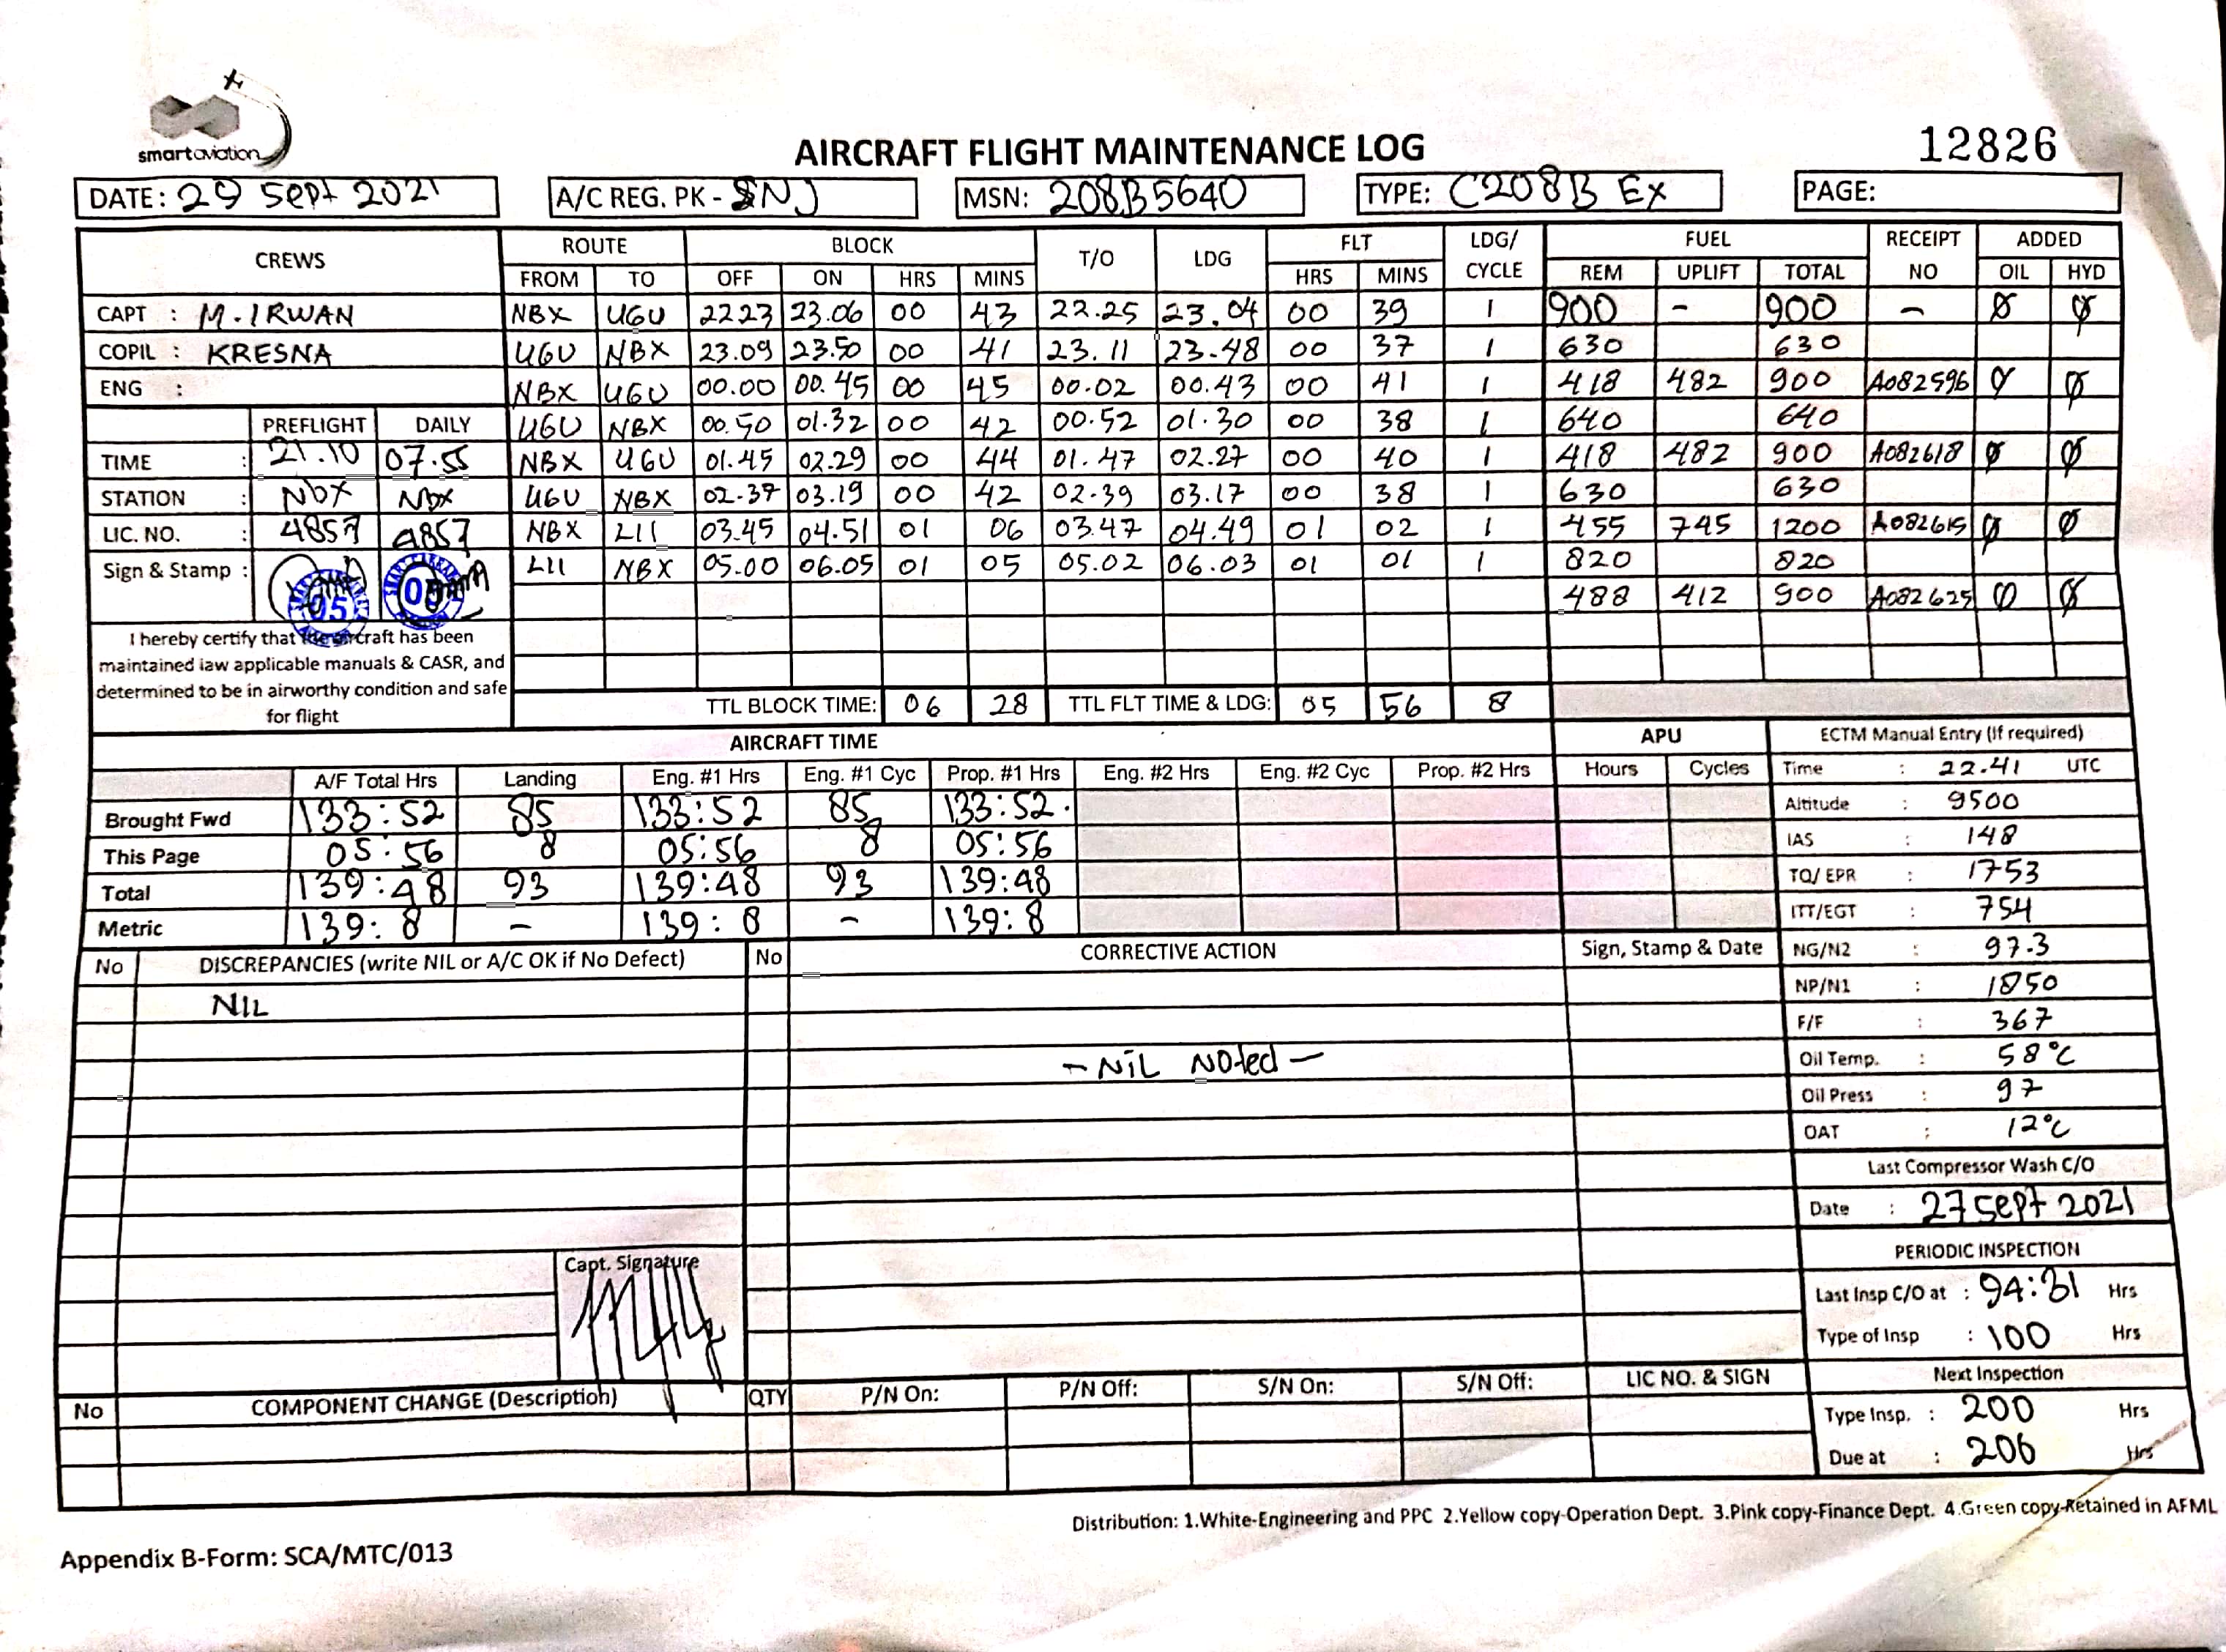 smartaviation
AIRCRAFT FLIGHT MAINTENANCE LOG
12826
DATE: 29 Sept 2021 A/C REG. PK - SNJ MSN: 208B5640 TYPE: C208B EX PAGE:
CREWS ROUTE BLOCK T/O LDG FLT LDG/ CYCLE FUEL RECEIPT NO ADDED
FROM TO OFF ON HRS MINS HRS MINS REM UPLIFT TOTAL OIL HYD
CAPT : M. IRWAN NBX UGU 2223 23.06 00 43 22.25 23.04 00 39 1 900 - 900 - Ø Ø
COPIL : KRESNA UGU NBX 23.09 23.50 00 41 23.11 23.48 00 37 1 630 630
ENG : NBX UGU 00.00 00.45 00 45 00.02 00.43 00 41 1 418 482 900 A082596 Ø Ø
PREFLIGHT DAILY UGU NBX 00.50 01.32 00 42 00.52 01.30 00 38 1 640 640
TIME : 21.10 07.55 NBX UGU 01.45 02.29 00 44 01.47 02.27 00 40 1 418 482 900 A082618 Ø Ø
STATION : Nbx Nbx UGU NBX 02.37 03.19 00 42 02.39 03.17 00 38 1 630 630
LIC. NO. : 4857 4857 NBX LII 03.45 04.51 01 06 03.47 04.49 01 02 1 455 745 1200 A082615 Ø Ø
Sign & Stamp : LII NBX 05.00 06.05 01 05 05.02 06.03 01 01 1 820 820
488 412 900 A082625 Ø Ø
I hereby certify that the aircraft has been
maintained iaw applicable manuals & CASR, and
determined to be in airworthy condition and safe
for flight
TTL BLOCK TIME: 06 28 TTL FLT TIME & LDG: 05 56 8
AIRCRAFT TIME APU ECTM Manual Entry (If required)
A/F Total Hrs Landing Eng. #1 Hrs Eng. #1 Cyc Prop. #1 Hrs Eng. #2 Hrs Eng. #2 Cyc Prop. #2 Hrs Hours Cycles Time : 22.41 UTC
Brought Fwd 133:52 85 133:52 85 133:52 Altitude : 9500
This Page 05:56 8 05:56 8 05:56 IAS : 148
Total 139:48 93 139:48 93 139:48 TQ/ EPR : 1753
Metric 139:8 - 139:8 - 139:8 ITT/EGT : 754
No DISCREPANCIES (write NIL or A/C OK if No Defect) No CORRECTIVE ACTION Sign, Stamp & Date NG/N2 : 97.3
NIL NP/N1 : 1850
F/F : 367
- NiL Noted - Oil Temp. : 58°C
Oil Press : 97
OAT : 12°C
Last Compressor Wash C/O
Date : 27 Sept 2021
PERIODIC INSPECTION
Capt. Signature
Last Insp C/O at : 94:31 Hrs
Type of Insp : 100 Hrs
No COMPONENT CHANGE (Description) QTY P/N On: P/N Off: S/N On: S/N Off: LIC NO. & SIGN Next Inspection
Type Insp. : 200 Hrs
Due at : 206 Hrs
Distribution: 1.White-Engineering and PPC 2.Yellow copy-Operation Dept. 3.Pink copy-Finance Dept. 4.Green copy-Retained in AFML
Appendix B-Form: SCA/MTC/013